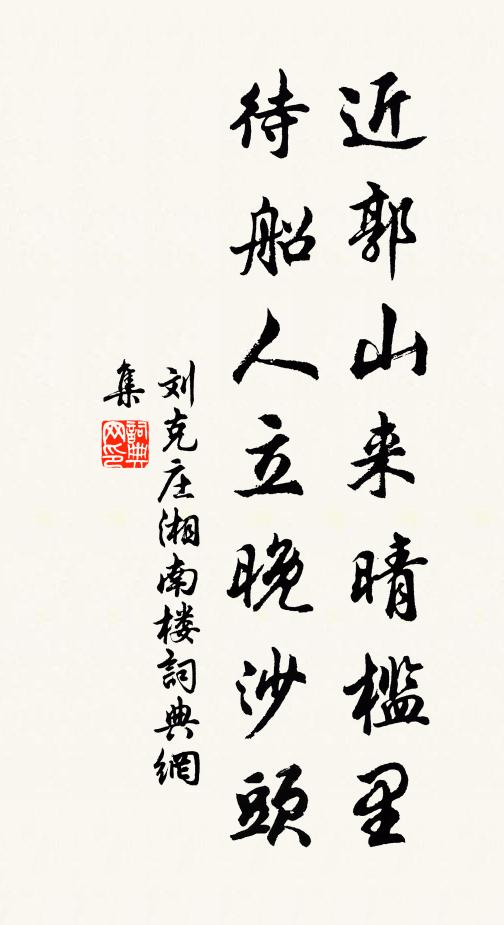 近郭山来晴槛里
待船人立晚沙頭
刘克庄湘南楼詞典網
集
詞典网印